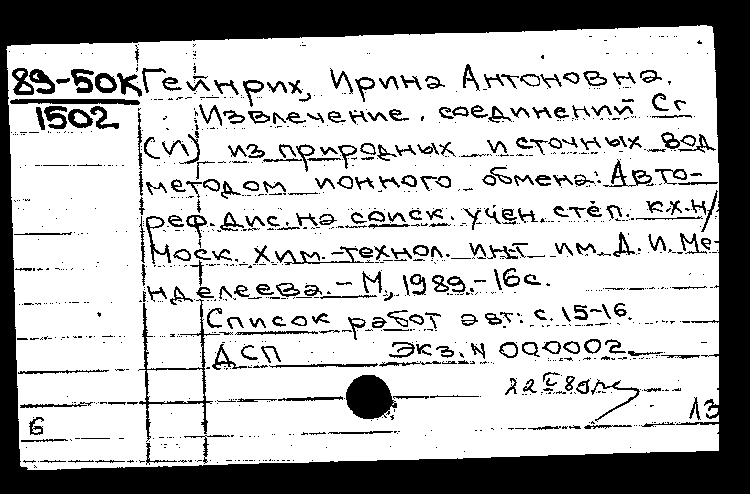 89-50К Гейнрих, Ирина Антоновна.
1502 Извлечение соединений Cr
(VI) из природных и сточных вод
методом ионного обмена: Авто-
реф. дис. на соиск. учен. степ. к.х.н/
Моск. хим.-технол. ин-т им. Д. И. Ме-
нделеева. - М, 1989. - 16 с.
Список работ авт: с. 15-16.
ДСП Экз. N 000002.
22 V 89
13
Б